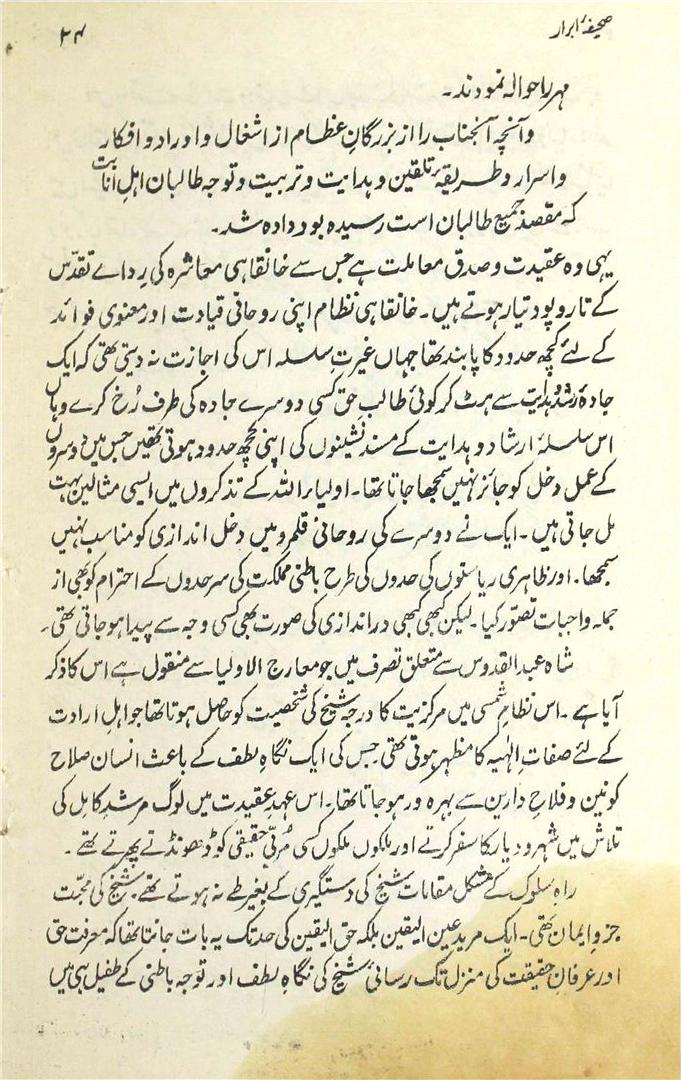 صحیفۂ ابرار
۲۴
مہر را حوالہ نمودند۔
وآنچہ آنجناب را از بزرگانِ عظام از اشغال و اوراد و افکار
واسرار وطریقۂ تلقین و ہدایت و تربیت و توجہ طالبان اہلِ انابت
کہ مقصد جمیع طالبان است رسیدہ بود دادہ شد۔
یہی وہ عقیدت و صدق معاملت ہے جس سے خانقاہی معاشرہ کی رِداے تقدّس
کے تاروپود تیار ہوتے ہیں۔ خانقاہی نظام اپنی روحانی قیادت اور معنوی فوائد
کے لئے کچھ حدود کا پابند تھا جہاں غیرتِ سلسلہ اس کی اجازت نہ دیتی تھی کہ ایک
جادۂ رشد و ہدایت سے ہٹ کر کوئی طالبِ حق کسی دوسرے جادہ کی طرف رُخ کرے وہاں
اس سلسلۂ ارشاد و ہدایت کے مسند نشینوں کی اپنی کچھ حدود ہوتی تھیں جس میں دوسروں
کے عمل دخل کو جائز نہیں سمجھا جاتا تھا۔ اولیاء اللہ کے تذکروں میں ایسی مثالیں بہت
مل جاتی ہیں۔ ایک نے دوسرے کی روحانی قلمرو میں دخل اندازی کو مناسب نہیں
سمجھا۔ اور ظاہری ریاستوں کی حدوں کی طرح باطنی مملکت کی سرحدوں کے احترام کو بھی از
جملہ واجبات تصوّر کیا۔ لیکن کبھی کبھی دراندازی کی صورت بھی کسی وجہ سے پیدا ہو جاتی تھی۔
شاہ عبدالقدوس سے متعلق تصرف میں جو معارج الاولیا سے منقول ہے اس کا ذکر
آیا ہے۔ اس نظامِ شمسی میں مرکزیت کا درجہ شیخ کی شخصیت کو حاصل ہوتا تھا جو اہلِ ارادت
کے لئے صفاتِ الٰہیہ کا مظہر ہوتی تھی۔ جس کی ایک نگاہِ لطف کے باعث انسان صلاح
کونین و فلاحِ دارین سے بہرہ ور ہو جاتا تھا۔ اس عہدِ عقیدت میں لوگ مرشدِ کامل کی
تلاش میں شہر و دیار کا سفر کرتے اور ملکوں ملکوں کسی مُربّیِ حقیقی کو ڈھونڈتے پھرتے تھے۔
راہِ سلوک کے مشکل مقامات شیخ کی دستگیری کے بغیر طے نہ ہوتے تھے۔ شیخ کی محبّت
جزوِ ایمان تھی۔ ایک مرید عین الیقین بلکہ حق الیقین کی حد تک یہ بات جانتا تھا کہ معرفت حق
اور عرفانِ حقیقت کی منزل تک رسائی شیخ کی نگاہِ لطف اور توجہ باطنی کے طفیل ہی میں